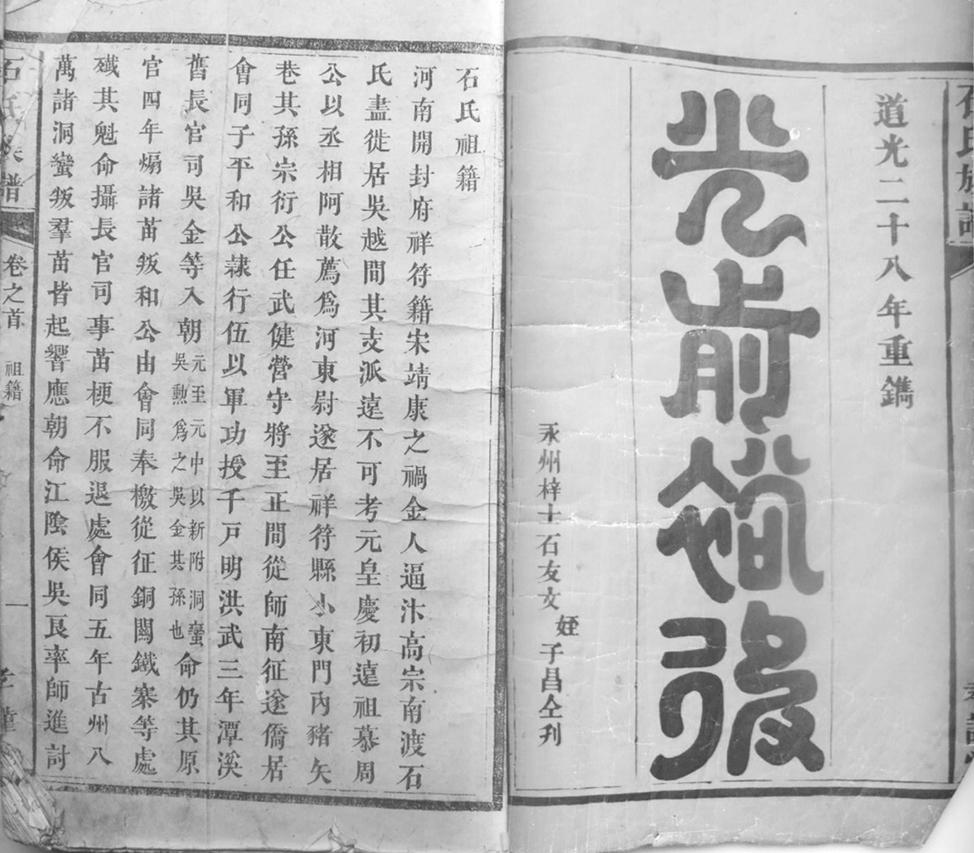 道光二十八年重鐫
光前裕後
永州梓士石友文姪子昌仝刋
石氏祖籍
河南開封府祥符籍宋靖康之禍金人逼汴高宗南渡石
氏盡徙居吳越間其支派遠不可考元皇慶初遠祖慕周
公以丞相阿散薦爲河東尉遂居祥符縣小東門內豬矢
巷其孫宗衍公任武健營守將至正間從師南征遂僑居
會同子平和公隷行伍以軍功授千戸明洪武三年潭溪
舊長官司吳金等入朝元至元中以新附洞蠻吳勲爲之吳金其孫也命仍其原
官四年煽諸苗叛和公由會同奉檄從征銅關鐵寨等處
殱其魁命攝長官司事苗梗不服退處會同五年古州八
萬諸洞蠻叛羣苗皆起響應朝命江陰侯吳良率師進討
石氏族譜
卷之首
祖籍
一